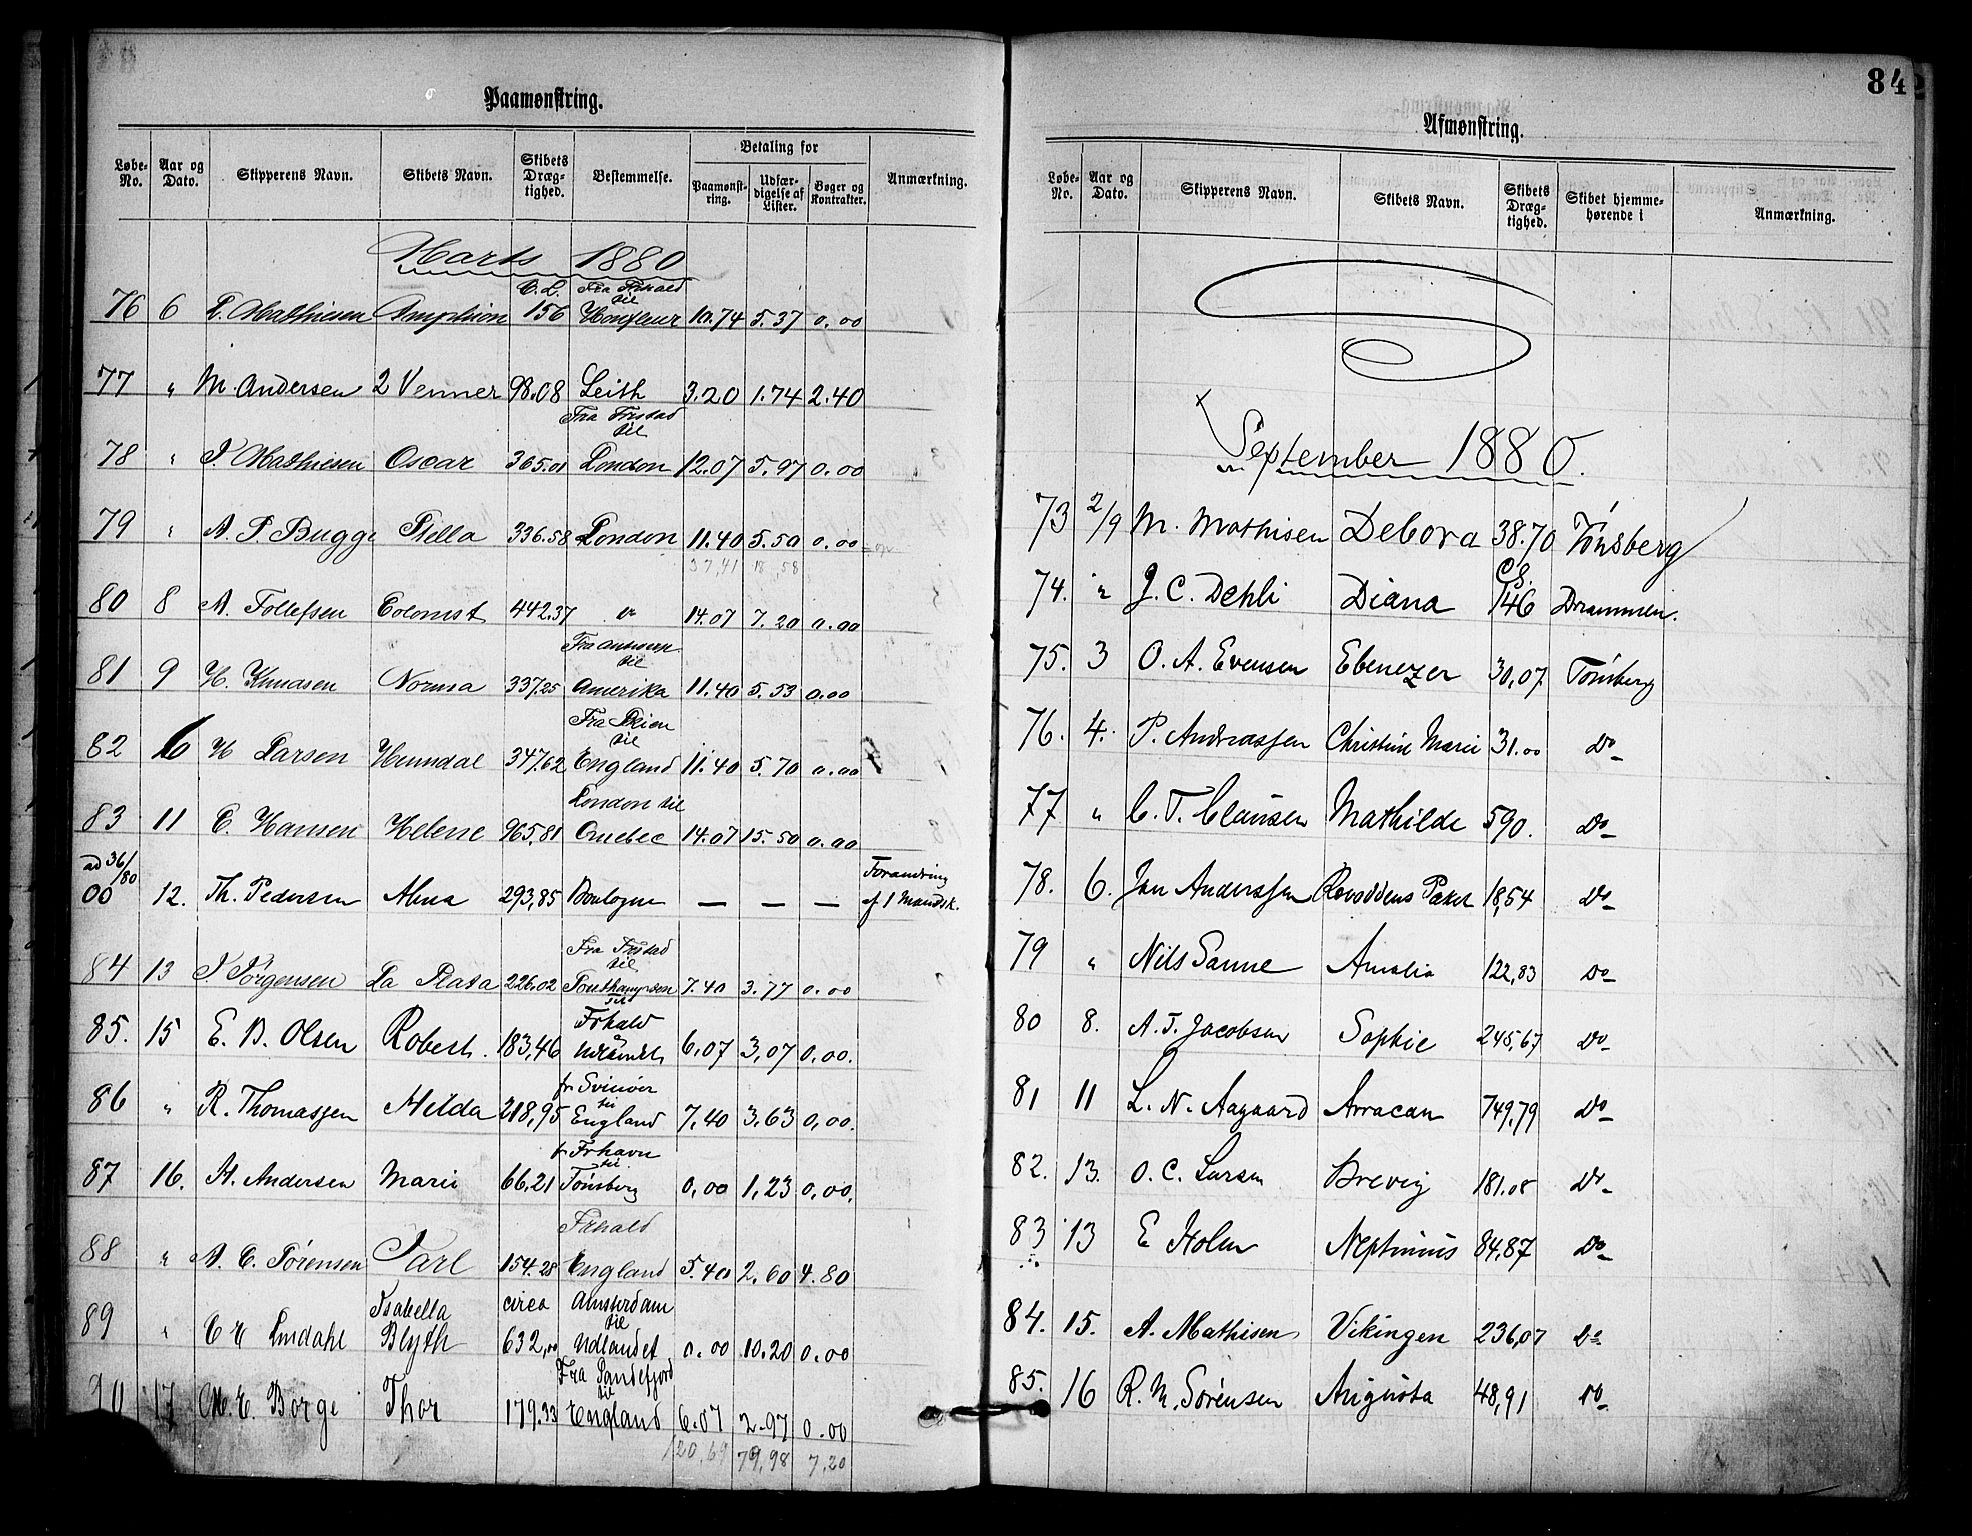 Paamønstring.
Løbe-No. Aar og Dato. Skipperens Navn. Skibets Navn. Skibets Dræg-tighed. Bestemmelse. Betaling for Paamønst-ring. Udfær-digelse af Lister. Bøger og Kontrakter. Anmærkning.
Marts 1880
C.L. Fra Frhald til
76 6 L. Mathiesen Amphion 156 Honfleur 10.74 5.37 0.00
77 " M. Andersen 2 Venner 98.08 Leith 3.20 1.74 2.40
Fra Frstad til
78 " J. Mathiesen Oscar 365.01 London 12.07 5.97 0.00
79 " A. P. Bugge Stella 336.58 London 11.40 5.50 0.00
37,41 18,58
80 8 A. Tollefsen Colonist 442.37 " 14.07 7.20 0.00
Fra Antwerp til
81 9 H. Knudsen Norma 337.25 Amerika 11.40 5.53 0.00
Fra Skien til
82 10 H Larsen Heimdal 347.62 England 11.40 5.70 0.00
London til
83 11 C. Hansen Helene 965,81 Quebec 14.07 15.50 0.00
ad 36/80 Forandring
00 12. Th. Pedersen Alma 293,85 Boulogne — — — af 1 Mandsk.
Fra Frstad til
84 13 J. Jørgensen La Plata 226.02 Southampton 7.40 3.77 0.00
Frhald
85. 15 E. B. Olsen Robert. 183,46 Udlandet 6,07 3,07 0,00.
fr Svinør til
86 " R. Thomassen Hilda 218,95 England 7,40 3,63 0,00.
f Frhavn til
87 16. H. Andersen Marie 66,21 Tönsberg 0,00 1,23 0,00.
Frhald
88 " A. C. Sørensen Carl 154.28 England 5.40 2.60 4.80
Isabella circa Amsterdam til
89 " C E Lindahl Blyth 632,00 Udlandet 0.00 10.20 0.00
Fra Sandefjord til
90 17 M. E. Borge Thor 179.33 England 6.07 2.97 0.00
120,69 79,98 7,20
84
Afmønstring.
Løbe-No. Aar og Dato. Skipperens Navn. Skibets Navn. Skibets Dræg-tighed. Skibet hjemme-hørende i Anmærkning.
September 1880.
73 2/9 M. Mathisen Debora 38.70 Tönsberg
C.L.
74. " J. C. Dehli Diana 146 Drammen.
75. 3 O. A. Evensen Ebenezer 30,07 Tönsberg
76. 4. P. Andreassen Christine Marie 31.00 Do
77 " C. T. Clausen Mathilde 590. Do
78. 6. Jan Anderssen Røvsödens Paket 18,54 Do
79 " Nils Sanne Amalia 122,83 Do
80 8. A. T. Jacobsen Sophie 245,67 Do
81 11 L. N. Aagaard Arracan 749,79 Do
82. 13. O. C. Larsen Brevig 181.08 Do
83 13 E Holm Neptunus 84,87 Do
84. 15. A. Mathisen Vikingen 236,07 Do
85. 16 R. M. Sörensen Augusta 48,91 Do